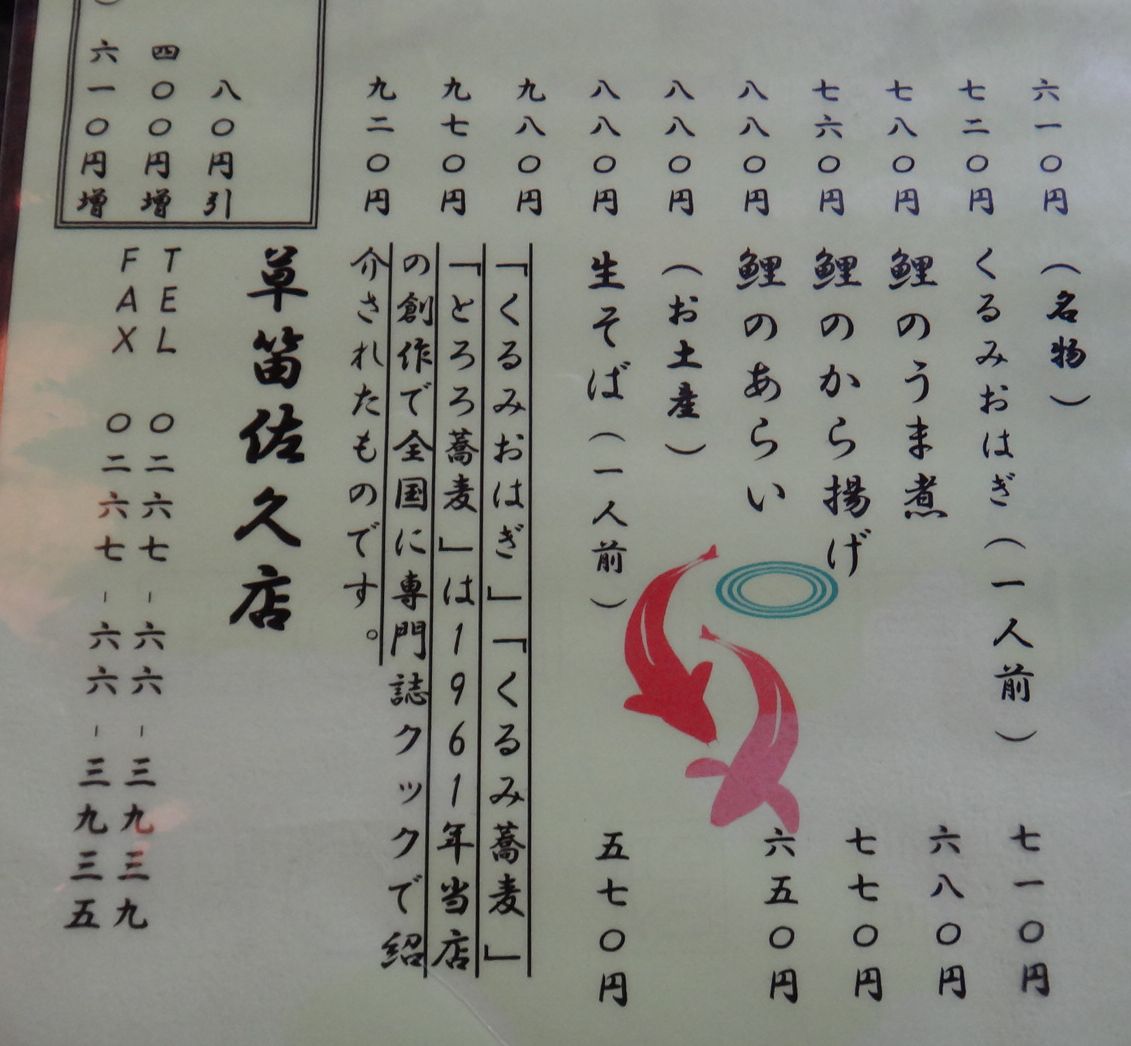 六一〇円
七二〇円
七八〇円
七六〇円
八八〇円
八八〇円
八八〇円
九八〇円
九七〇円
九二〇円
八〇円引
四〇〇円増
）六一〇円増
（名物）
くるみおはぎ（一人前） 七一〇円
鯉のうま煮 六八〇円
鯉のから揚げ 七七〇円
鯉のあらい 六五〇円
（お土産）
生そば（一人前） 五七〇円
「くるみおはぎ」「くるみ蕎麦」
「とろろ蕎麦」は１９６１年当店
の創作で全国に専門誌クックで紹
介されたものです。
草笛佐久店
TEL 〇二六七-六六-三九三九
FAX 〇二六七-六六-三九三五